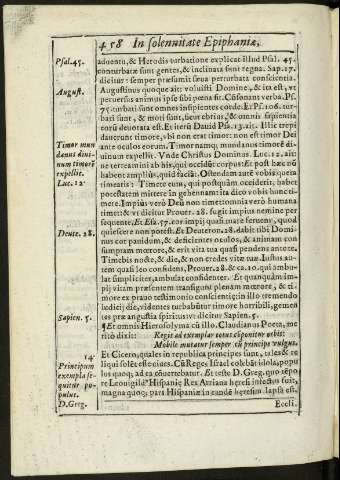 458 In solennitate Epiphaniæ,
Psal. 45.
aduentu, & Herodis turbatione explicat illud Psal. 45.
conturbatæ sunt gentes, & inclinata sunt regna. Sap. 17.
dicitur: semper præsumit sæua perturbata conscientia.
August.
Augustinus quoque ait: voluisti Domine, & ita est, vt
peruersus animus ipse sibi pœna sit. Cõsonant verba. Ps.
75. turbati sunt omnes insipientes corde. Et Ps. 106. turbati
sunt, & moti sunt, sicut ebrius, & omnis sapientia
eorũ deuorata est. Et iterũ Dauid Psal. 13. ait. Illic trepi
dauerunt timore, vbi non erat timor: non est timor Dei
Timor mun
danus diui-
num timorẽ
expellit.
Luc. 12.
ante oculos eorum. Timor namq; mundanus timorẽ di-
uinum expellit. Vnde Christus Dominus. Luc. 12. ait:
ne terreamini ab his, qui occidũt corpus: Et post hæc nõ
habent amplius, quid faciãt. Ostendam autẽ vobis quem
timeatis: Timete eum, qui postquàm occiderit, habet
potestatem mittere in gehennam: ita dico vobis hunc ti-
mete. Impius verò Deũ non timet: omnia verò humana
timet: & vt dicitur Prouer. 28. fugit impius nemine per
sequente, Et Esa. 57. cor impij quasi mare feruens, quod
Deute. 28.
quiescere nõ potest. Et Deuteron. 28. dabit tibi Domi-
nus cor pauidum, & deficientes oculos, & animam con
sumptam mœrore, & erit vita tua quasi pendens ante te.
Timebis nocte, & die, & non credes vitæ tuæ. Iustus au-
tem quasi leo confidens, Prouer. 28. & ca. 10. qui ambu-
lat simpliciter, ambulat confidenter. Et quanquàm im-
pij vitam præsentem transigunt plenam mœrore, & ti-
more ex prauo testimonio conscientię; in illo tremendo
Sapien. 5.
iudicij die, videntes turbabũtur timore horribili, gemen
tes præ angustia spiritus: vt dicitur Sapien. 5.
¶ Et omnis Hierosolyma cũ illo. Claudianus Poeta, me
ritò dixit:
Regis ad exemplar totus componitur orbis:
Mobile mutatur semper cũ principe vulgus.
14
Principum
exempla se-
quitur po-
pulus.
D. Greg.
Et Cicero, quales in republica principes sunt, tales & re
liqui solẽt esse ciues. Cũ Reges Israel colebãt idola, popu
lus quoq; ad ea cõuertebatur. Et teste D. Greg. quo tẽpo
re Leouigildꝰ Hispanię Rex Arriana hęresi infectus fuit,
magna quoq; pars Hispanię in eandẽ hęresim lapsa est.
Eccli.